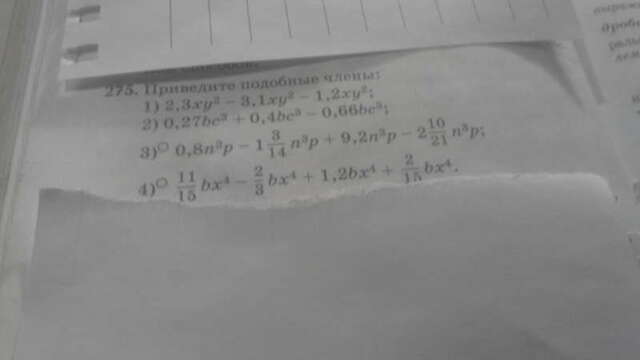 275. Приведите подобные члены:
1) 2,3xy² − 3,1xy² − 1,2xy²;
2) 0,27bc³ + 0,4bc³ − 0,66bc³;
3) 0,8n³p − 1 3/14 n³p + 9,2n³p − 2 10/21 n³p;
4) 11/15 bx⁴ − 2/3 bx⁴ + 1,2bx⁴ + 2/15 bx⁴.